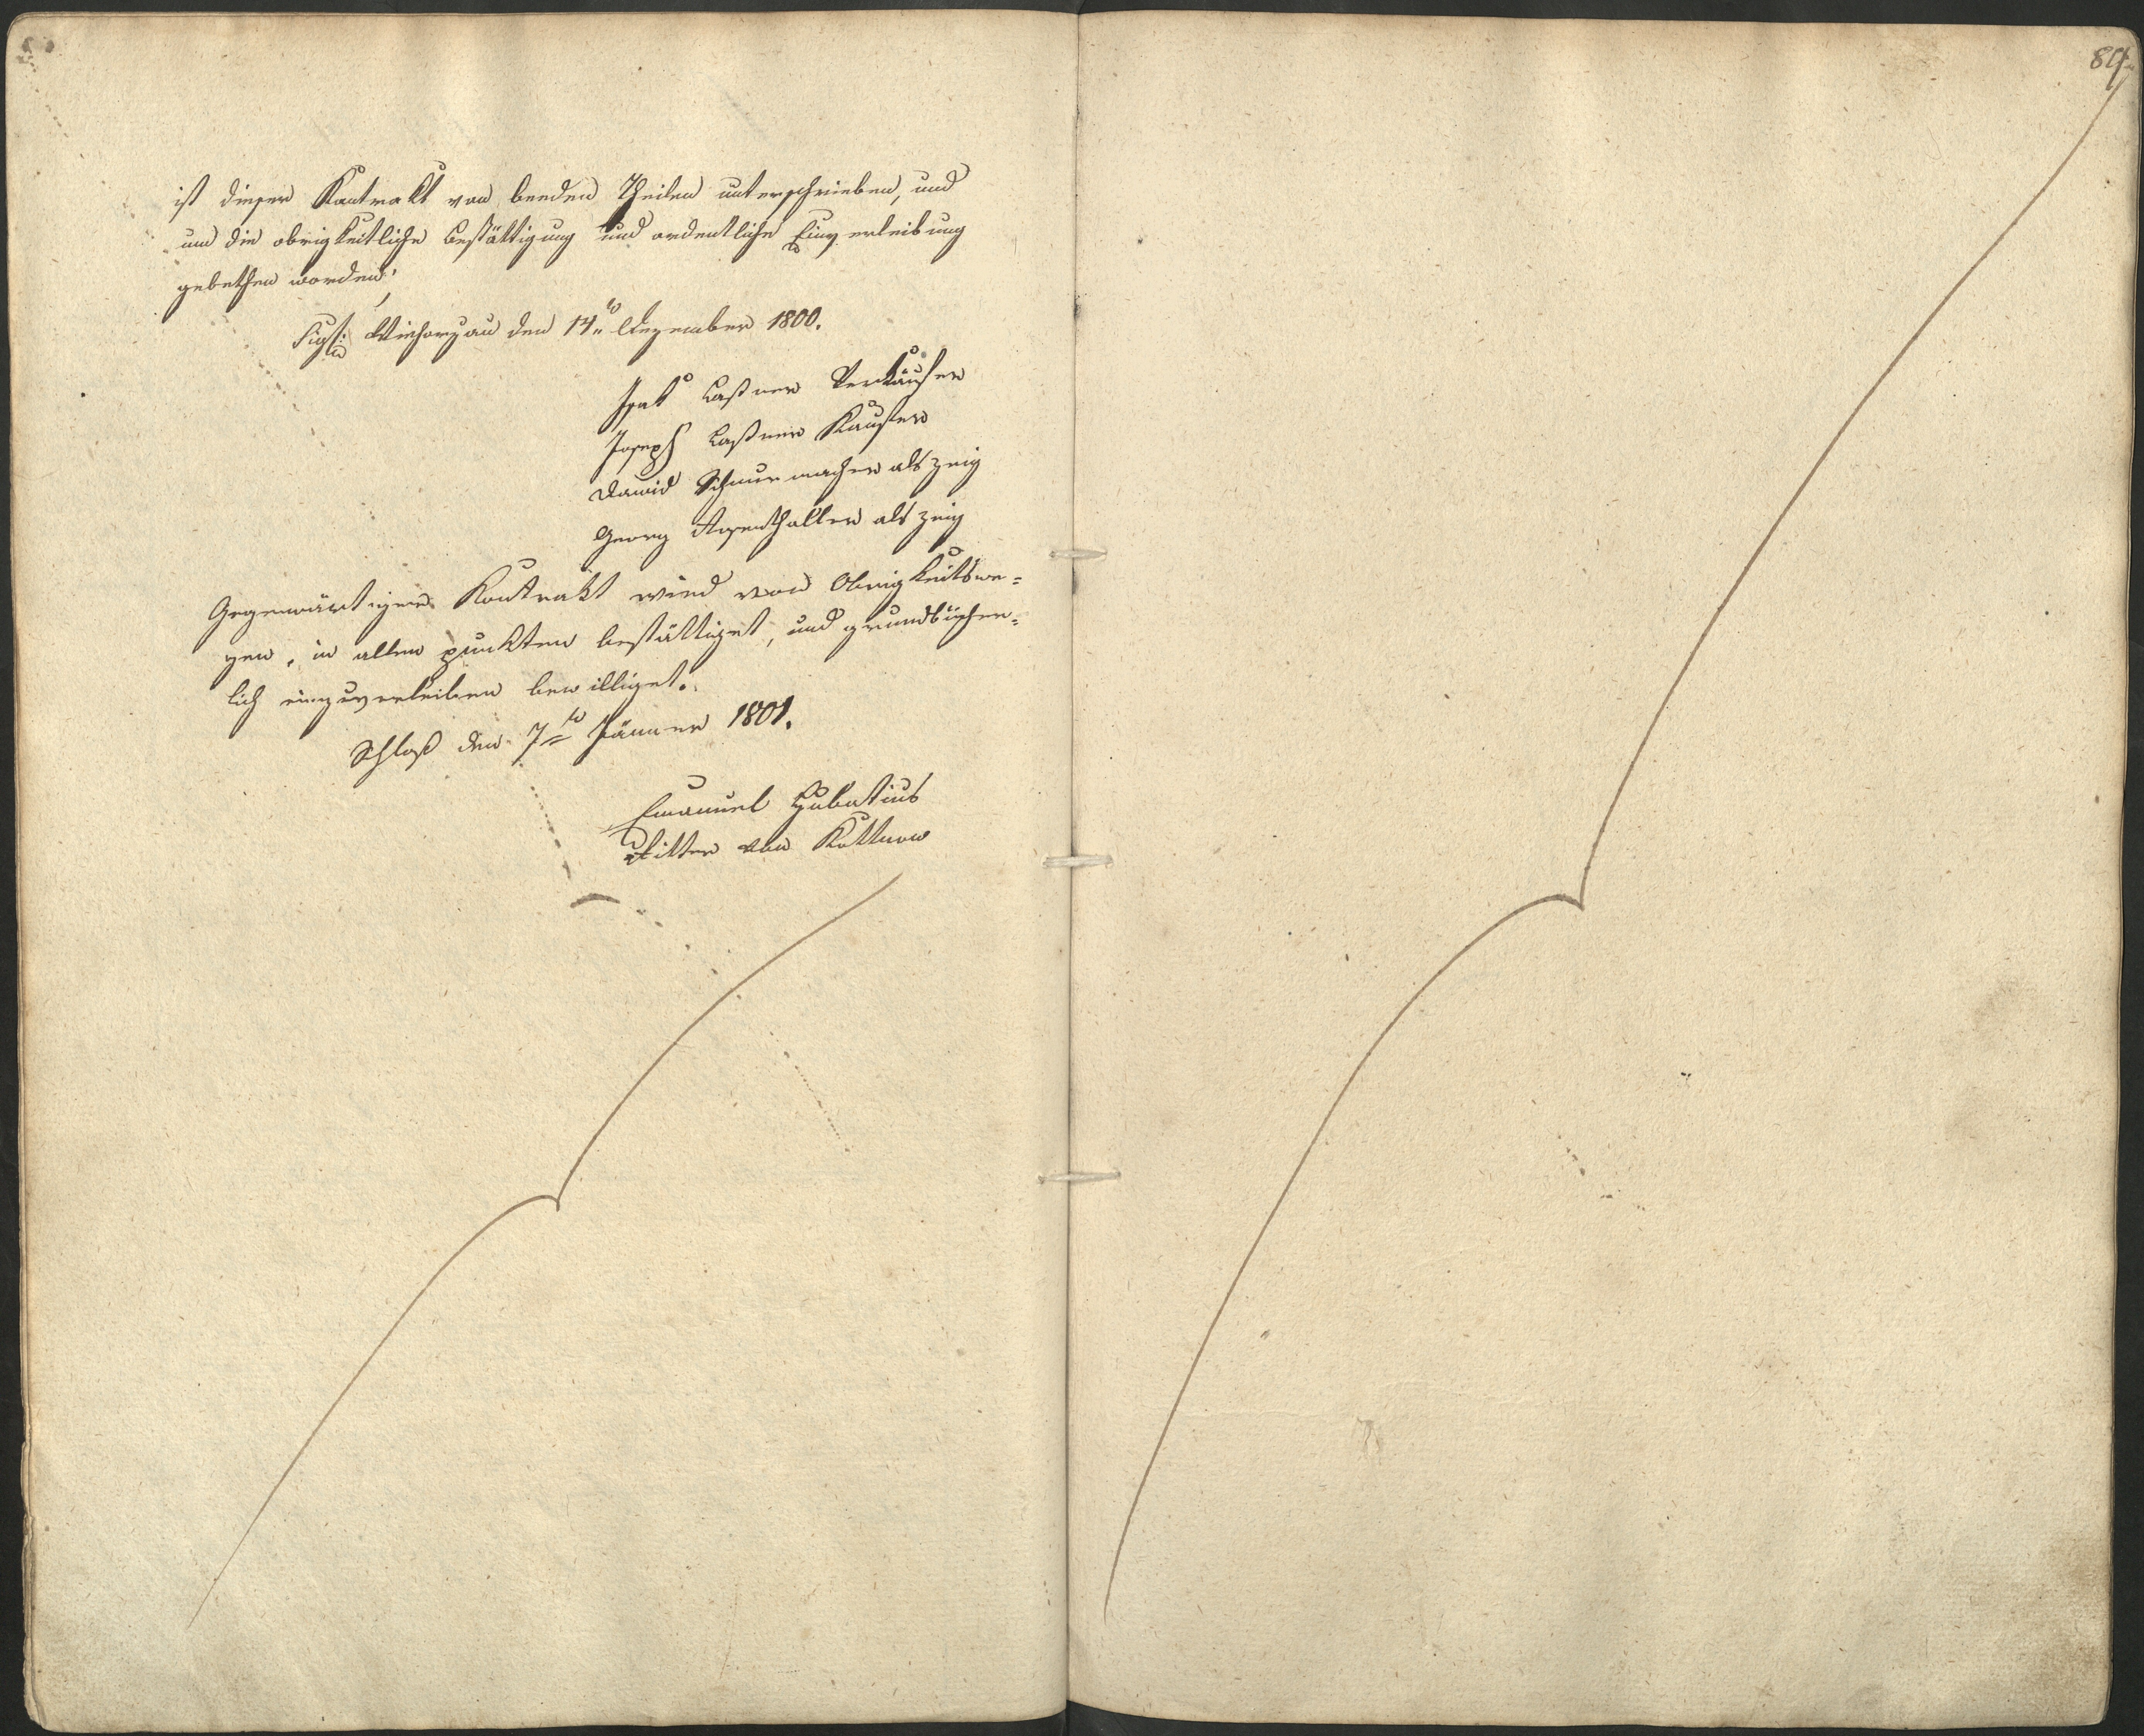 ist dieser Kontrakt von beeden Theilen unterschrieben, und
um die obrigkeitliche bestättigung und ordentliche Einverleibung
gebethen worden,
den 14tn Dezember 1800.
Isak Laßner Verkäufer
Joseph Laßner Kaufer
David Schnurmacher als zeig
Georg als zeig
Gegenwärtiger Kontrakt wird von Obrigkeitswe=
gen, in allen punkten bestättiget, und grundbücher=
lich einzuverleiben bewilliget.
Schloß den 7tn Jänner 1801.
Emanuel Hubatius
Ritter von Kottnow
84